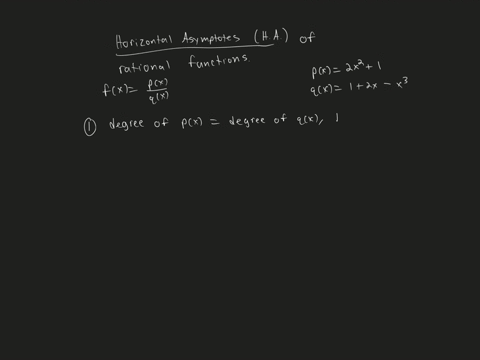 Horizontal Asymptotes (H.A.) of
rational functions.
f(x) = p(x)/q(x)
p(x) = 2x² + 1
q(x) = 1 + 2x - x³
① degree of p(x) = degree of q(x),